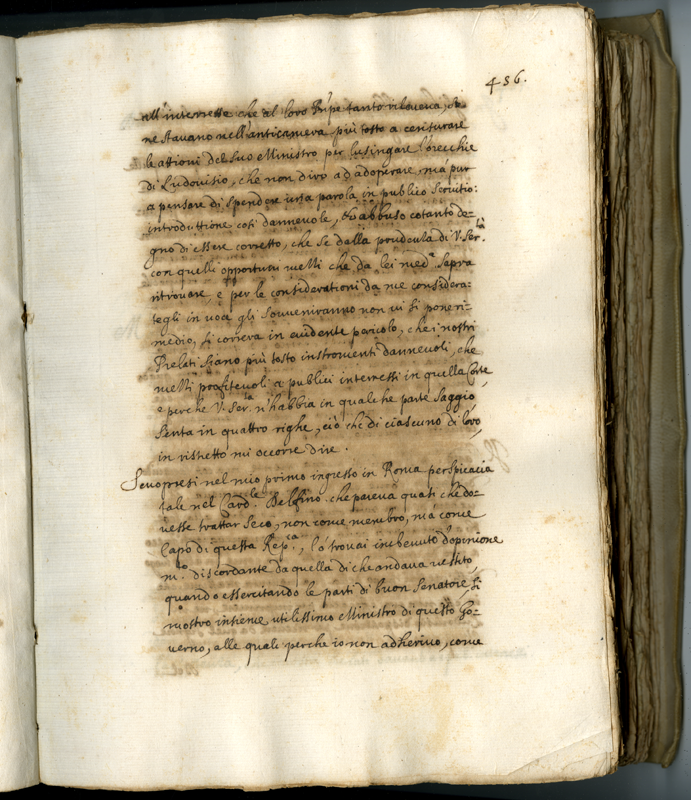 436.
all'interesse che al loro Prīpe tanto rileveva, se
ne stavano nell'anticamera più tosto a censurare
le attioni del suo Ministro per lusingar l'orecchie
di Ludovisio, che non dirò ad adoperare, mà pur
a pensare di spendere una parola in publico servitio:
introduttione così dannevole, et abbuso cotanto de-
gno di essere corretto, che se dalla prudenza di V. Ser.tà
con quelli opportuni mezzi che da lei med.a saprà
ritrovare, e per le considerationi da me considera-
tegli in voce gli sovveniranno non vi si pone ri-
medio, si correrà in evidente pericolo, che i nostri
Prelati siano più tosto instromenti dannevoli, che
mezzi profitevoli a publici interessi in quella Corte
e perche V. Ser.tà n'habbia in qualche parte saggio
senta in quattro righe, ciò che di ciascuno di loro,
in ristretto mi occorre dire.
Scuopresi nel mio primo ingresso in Roma perspicacia
tale nel Card.le Delfino che pareva quasi che do-
vesse trattar seco, non come membro, ma come
Capo di questa Rep.ca, lo trovai imbevuto d'opinione
m.to discordante da quella di che andava vestito,
quando essercitando le parti di buon Senatore, si
mostrò insieme utilissimo Ministro di questo Go-
verno, alle quali perche io non adherivo, come